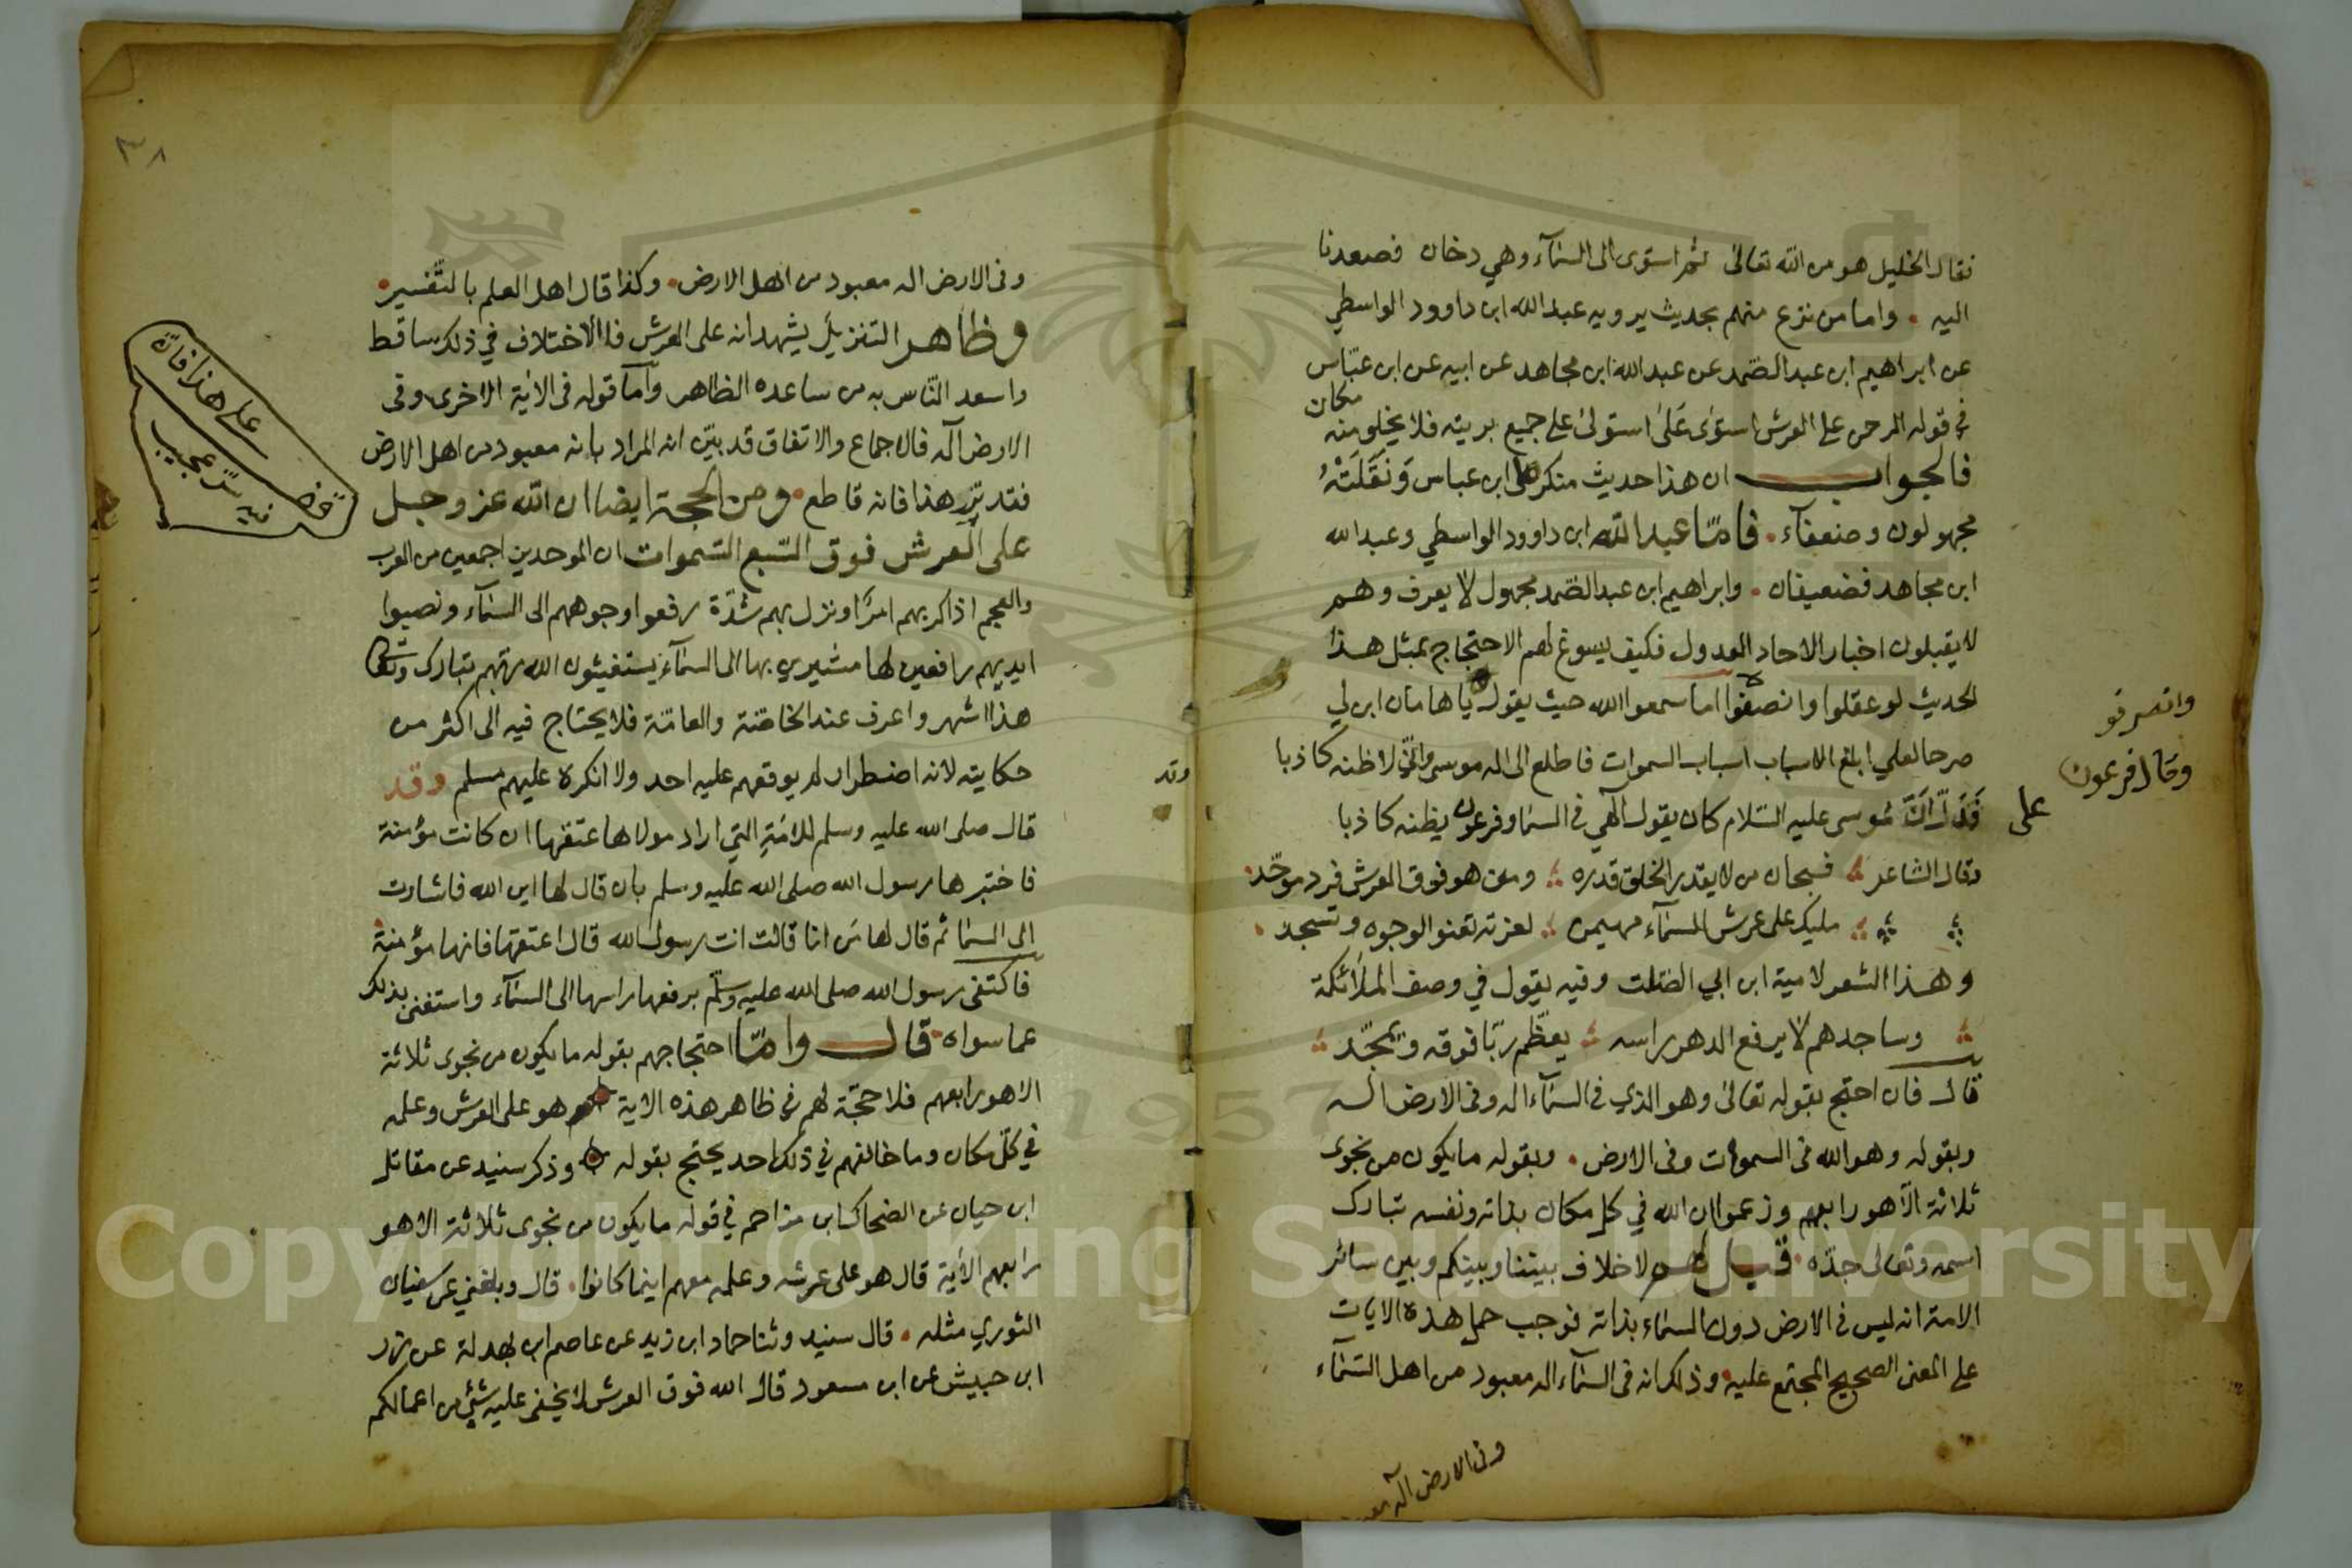 فقال الخليل هو من الله تعالى ثم استوى الى السمآء وهي دخان فصعدنا
اليه . واما من نزع منهم بحديث يرويه عبد الله ابن داوود الواسطي
عن ابراهيم ابن عبد الصمد عن عبد الله ابن مجاهد عن ابيه عن ابن عباس
في قوله الرحمن على العرش استوى على استولى على جميع بريته فلا يخلو منه
مكان
فالجواب ان هذا حديث منكر على ابن عباس ونقلته
مجهولون وضعفآء . فامّا عبد الله ابن داوود الواسطي وعبد الله
ابن مجاهد فضعيفان . وابراهيم ابن عبد الصمد مجهول لا يعرف وهم
لا يقبلون اخبار الاحاد العدول فكيف يسوغ لهم الاحتجاج بمثل هذا
الحديث لو عقلوا وانصفوا اما سمعوا الله حيث يقول يا هامان ابن لي
صرحا لعلي ابلغ الاسباب اسباب السموات فاطلع الى اله موسى واني لاظنه كاذبا
فدل ان موسى عليه السلام كان يقول الهي في السما وفرعون يظنه كاذبا
وقال الشاعر فسبحان من لا يقدر الخلق قدره ومن هو فوق العرش فرد موحّد
مليك على عرش السمآء مهيمن لعزته تعنو الوجوه وتسجد
وهذا الشعر لامية ابن ابي الصلت وفيه يقول في وصف الملائكة
وساجدهم لا يرفع الدهر راسه يعظّم ربّا فوقه ويمجّد
قال فان احتج بقوله تعالى وهو الذي في السمآء اله وفى الارض اله
وبقوله وهو الله فى السموات وفى الارض . وبقوله ما يكون من نجوى
ثلاثة الا هو رابعهم وزعموا ان الله في كل مكان بذاته ونفسه تبارك
اسمه وتعالى جدّه قيل لهم لا خلاف بيننا وبينكم وبين سائر
الامة انه ليس فى الارض دون السماء بذاته فوجب حمل هذه الايات
على المعنى الصحيح المجتمع عليه وذلك انه فى السمآء اله معبود من اهل السمآء
وفى الارض اله
وانصرفو
وقال فرعون
على
وقد
٣٨
وفى الارض اله معبود من اهل الارض . وكذا قال اهل العلم بالتفسير
وظاهر التنزيل يشهد انه على العرش فالاختلاف في ذلك ساقط
واسعد الناس به من ساعده الظاهر واما قوله فى الاية الاخرى وفى
الارض اله فالاجماع والاتفاق قد بيّن ان المراد بانه معبود من اهل الارض
فتدبّر هذا فانه قاطع . ومن الحجة ايضا ان الله عز وجل
على العرش فوق السّبع السّموات ان الموحدين اجمعين من العرب
والعجم اذا كربهم امرا ونزل بهم شدّة رفعوا وجوههم الى السمآء ونصبوا
ايديهم رافعين لها مشيرين بها الى السمآء يستغيثون الله ربّهم تبارك وتعالى
هذا اشهر واعرف عند الخاصّة والعامّة فلا يحتاج فيه الى اكثر من
حكايته لانه اضطرار لم يوقعهم عليه احد ولا انكره عليهم مسلم وقد
قال صلى الله عليه وسلم للامة التي اراد مولاها عتقها ان كانت مؤمنة
فاختبرها رسول الله صلى الله عليه وسلم بان قال لها اين الله فاشارت
الى السما ثم قال لها من انا قالت انت رسول الله قال اعتقها فانها مؤمنة
فاكتفى رسول الله صلى الله عليه وسلّم برفعها راسها الى السمآء واستغنى بذلك
عما سواه قال وامّا احتجاجهم بقوله ما يكون من نجوى ثلاثة
الا هو رابعهم فلا حجّة لهم في ظاهر هذه الاية هو على العرش وعلمه
في كلّ مكان وما خالفهم في ذلك احد يحتج بقوله وذكر سنيد عن مقاتل
ابن حيان عن الضحاك ابن مزاحم في قوله ما يكون من نجوى ثلاثة الا هو
رابعهم الاية قال هو على عرشه وعلمه معهم اينما كانوا . قال وبلغني عن سفيان
الثوري مثله . قال سنيد وثنا حماد ابن زيد عن عاصم ابن بهدلة عن زر
ابن حبيش عن ابن مسعود قال الله فوق العرش لا يخفى عليه شئ من اعمالكم
على هذا فانه
سرّ عجيب
Copyright © King Saud University
1957